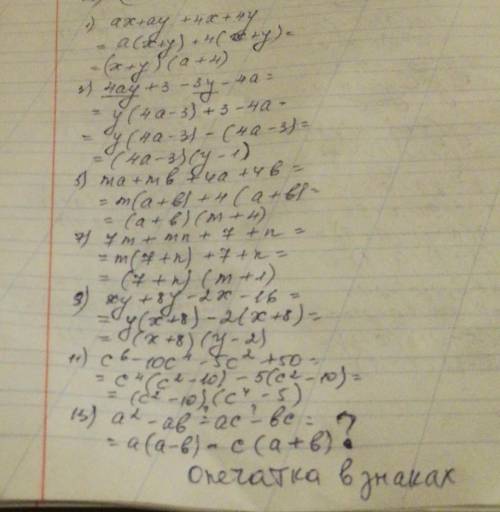 1) ax+ay+4x+4y
= a(x+y)+4(x+y)=
= (x+y)(a+4)
3) 4ay+3-3y-4a=
= y(4a-3)+3-4a=
= y(4a-3)-(4a-3)=
= (4a-3)(y-1)
5) ma+mb+4a+4b=
= m(a+b)+4(a+b)=
= (a+b)(m+4)
7) 7m+mn+7+n=
= m(7+n)+7+n=
= (7+n)(m+1)
9) xy+8y-2x-16=
= y(x+8)-2(x+8)=
= (x+8)(y-2)
11) c⁶-10c⁴-5c²+50=
= c⁴(c²-10)-5(c²-10)=
= (c²-10)(c⁴-5)
13) a²-ab-ac-bc=
= a(a-b)-c(a+b) ?
Опечатка в знаках